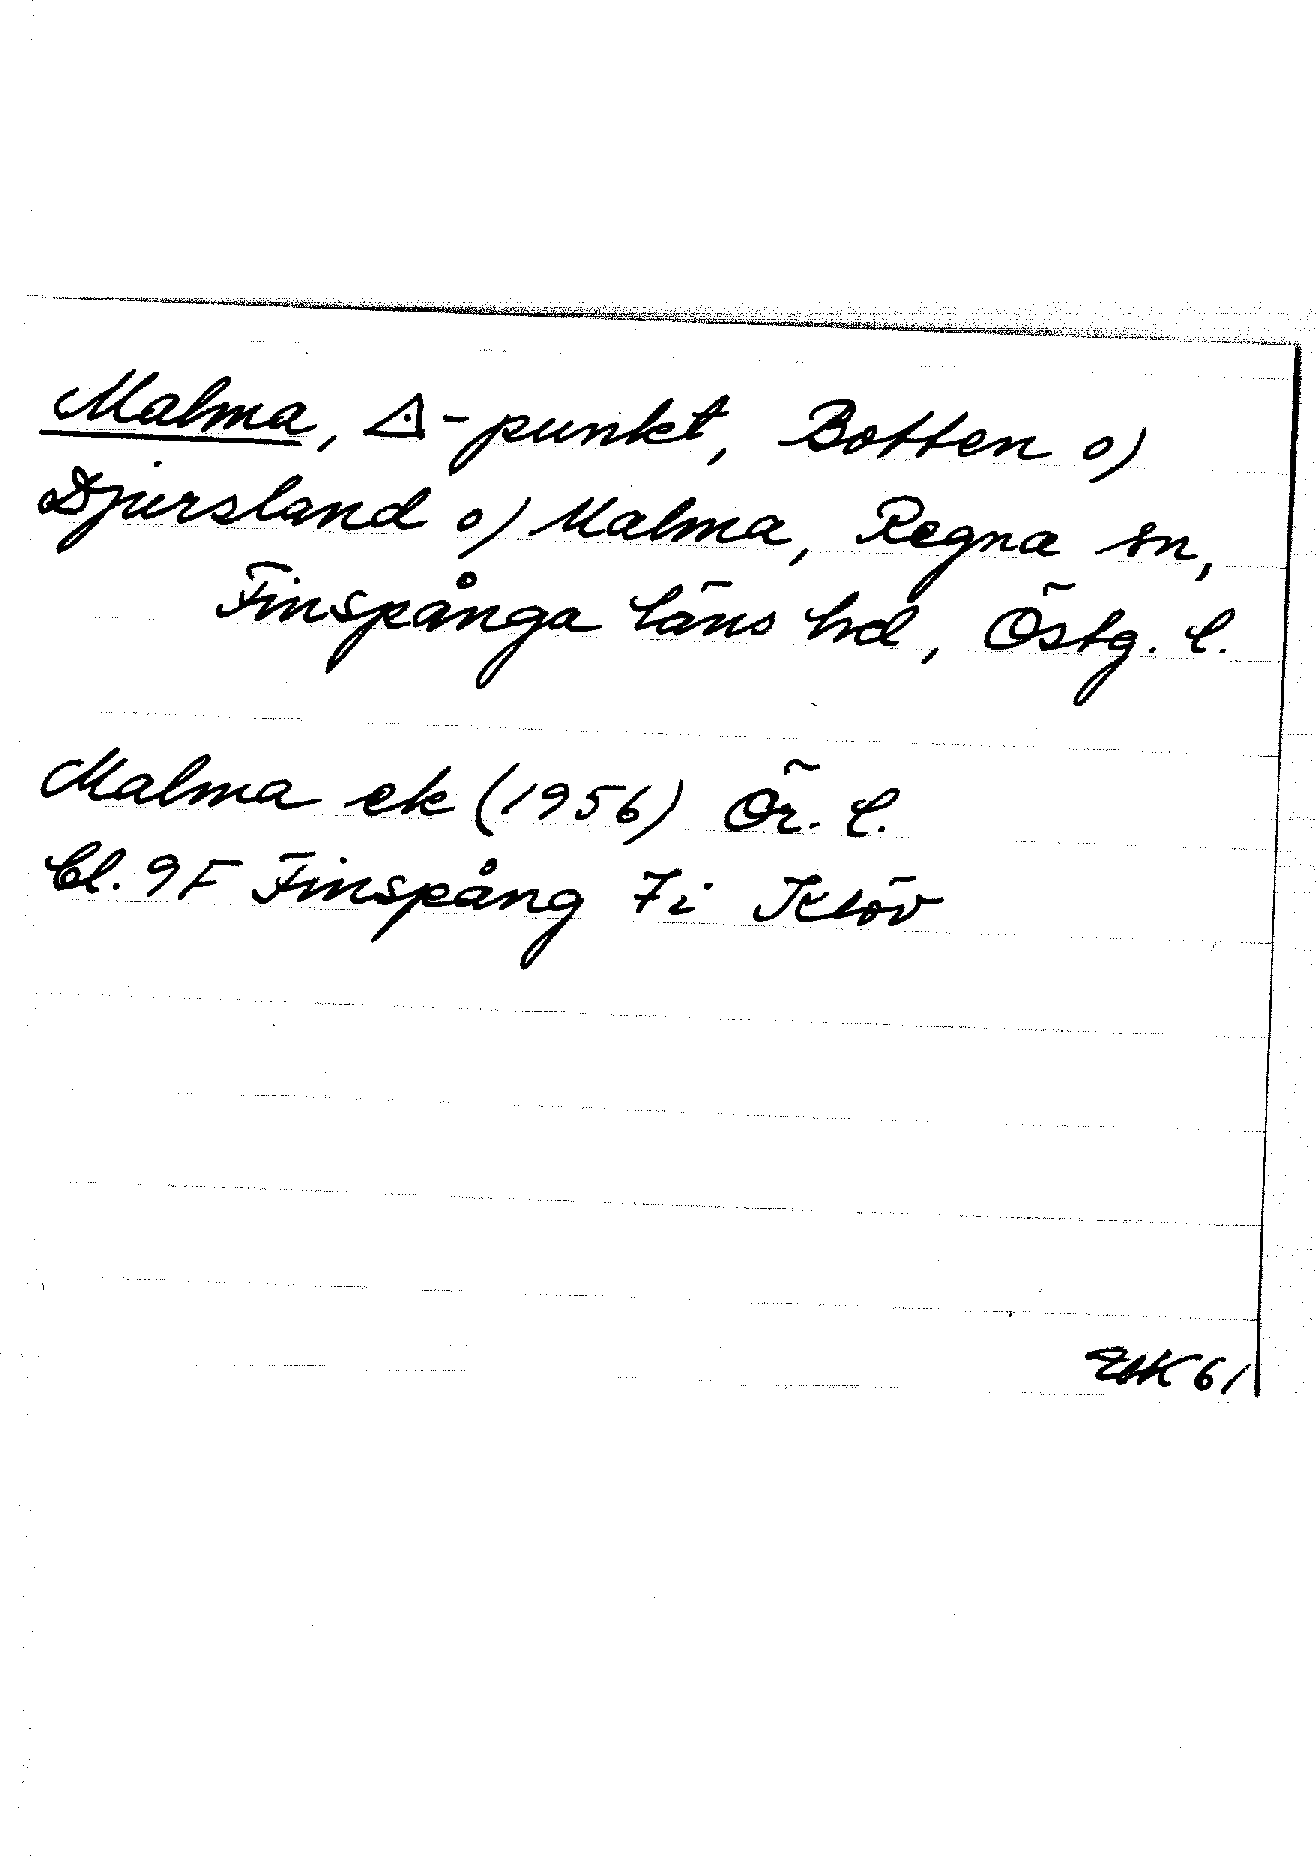 Malma, △-punkt, Botten o)
Djursland o) Malma, Regna sn,
Finspånga läns hd, Östg. l.
Malma ek (1956) Ör. l.
bl. 9F Finspång 7i
61